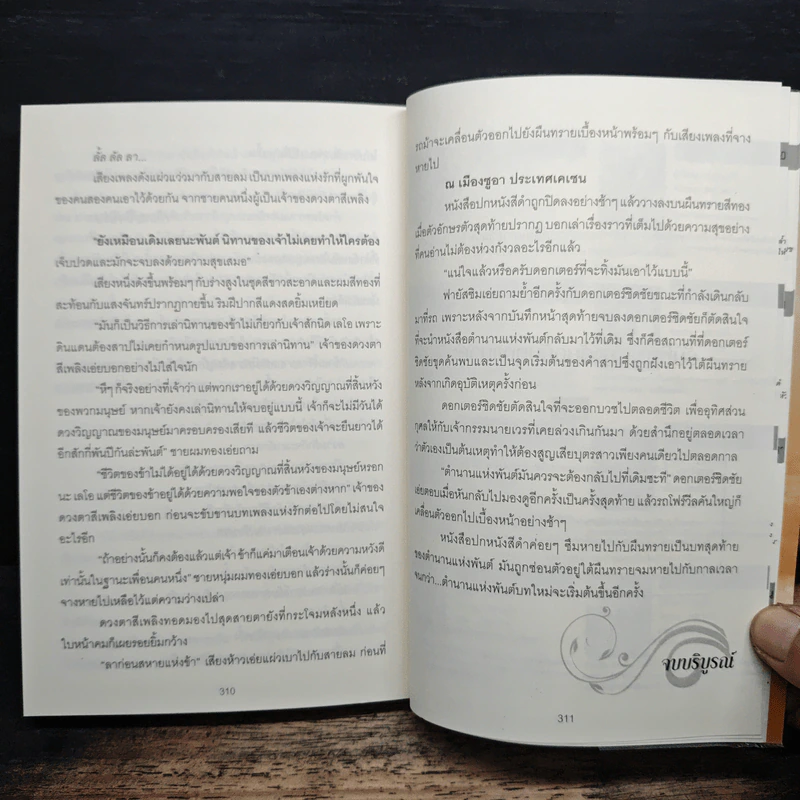 ลั้ล ลัล ลา...
เสียงเพลงดังแผ่วแว่วมากับสายลม เป็นบทเพลงแห่งรักที่ผูกพันใจ
ของคนสองคนเอาไว้ด้วยกัน จากชายคนหนึ่งผู้เป็นเจ้าของดวงตาสีเพลิง
"ยังเหมือนเดิมเลยนะพันต์ นิทานของเจ้าไม่เคยทำให้ใครต้อง
เจ็บปวดและมักจะจบลงด้วยความสุขเสมอ"
เสียงหนึ่งดังขึ้นพร้อมๆ กับร่างสูงในชุดสีขาวสะอาดและผมสีทองที่
สะท้อนกับแสงจันทร์ปรากฏกายขึ้น ริมฝีปากสีแดงสดยิ้มเหยียด
"มันก็เป็นวิธีการเล่านิทานของข้าไม่เกี่ยวกับเจ้าสักนิด เลโอ เพราะ
ดินแดนต้องสาปไม่เคยกำหนดรูปแบบของการเล่านิทาน" เจ้าของดวงตา
สีเพลิงเอ่ยบอกอย่างไม่ใส่ใจนัก
"หึๆ ก็จริงอย่างที่เจ้าว่า แต่พวกเราอยู่ได้ด้วยดวงวิญญาณที่สิ้นหวัง
ของพวกมนุษย์ หากเจ้ายังคงเล่านิทานให้จบอยู่แบบนี้ เจ้าก็จะไม่มีวันได้
ดวงวิญญาณของมนุษย์มาครอบครองเสียที แล้วชีวิตของเจ้าจะยืนยาวได้
อีกสักกี่พันปีกันล่ะพันต์" ชายผมทองเอ่ยถาม
"ชีวิตของข้าไม่ได้อยู่ได้ด้วยวิญญาณที่สิ้นหวังของมนุษย์หรอก
นะ เลโอ แต่ชีวิตของข้าอยู่ได้ด้วยความพอใจของตัวข้าเองต่างหาก" เจ้าของ
ดวงตาสีเพลิงเอ่ยบอก ก่อนจะขับขานบทเพลงแห่งรักต่อไปโดยไม่สนใจ
อะไรอีก
"ถ้าอย่างนั้นก็คงต้องแล้วแต่เจ้า ข้าก็แค่มาเตือนเจ้าด้วยความหวังดี
เท่านั้นในฐานะเพื่อนคนหนึ่ง" ชายหนุ่มผมทองเอ่ยบอก แล้วร่างนั้นก็ค่อยๆ
จางหายไปเหลือไว้แต่ความว่างเปล่า
ดวงตาสีเพลิงทอดมองไปสุดสายตายังที่กระโจมหลังหนึ่ง แล้ว
ใบหน้าคมก็เผยรอยยิ้มกว้าง
"ลาก่อนสหายแห่งข้า" เสียงห้าวเอ่ยแผ่วเบาไปกับสายลม ก่อนที่
310
รถม้าจะเคลื่อนตัวออกไปยังผืนทรายเบื้องหน้าพร้อมๆ กับเสียงเพลงที่จาง
หายไป
ณ เมืองซูอา ประเทศเคเซน
หนังสือปกหนังสีดำถูกปิดลงอย่างช้าๆ แล้ววางลงบนผืนทรายสีทอง
เมื่อตัวอักษรตัวสุดท้ายปรากฏ บอกเล่าเรื่องราวที่เต็มไปด้วยความสุขอย่าง
ที่คนอ่านไม่ต้องห่วงกังวลอะไรอีกแล้ว
"แน่ใจแล้วหรือครับดอกเตอร์ที่จะทิ้งมันเอาไว้แบบนี้"
ฟายัสซิมเอ่ยถามย้ำอีกครั้งกับดอกเตอร์ชิดชัยขณะที่กำลังเดินกลับ
มาที่รถ เพราะหลังจากบันทึกหน้าสุดท้ายจบลงดอกเตอร์ชิดชัยก็ตัดสินใจ
ที่จะนำหนังสือตำนานแห่งพันต์กลับมาไว้ที่เดิม ซึ่งก็คือสถานที่ที่ดอกเตอร์
ชิดชัยขุดค้นพบและเป็นจุดเริ่มต้นของคำสาปซึ่งถูกฝังเอาไว้ใต้ผืนทราย
หลังจากเกิดอุบัติเหตุครั้งก่อน
ดอกเตอร์ชิดชัยตัดสินใจที่จะออกบวชไปตลอดชีวิต เพื่ออุทิศส่วน
กุศลให้กับเจ้ากรรมนายเวรที่เคยล่วงเกินกันมา ด้วยสำนึกอยู่ตลอดเวลา
ว่าตัวเองเป็นต้นเหตุทำให้ต้องสูญเสียบุตรสาวเพียงคนเดียวไปตลอดกาล
"ตำนานแห่งพันต์มันควรจะต้องกลับไปที่เดิมซะที" ดอกเตอร์ชิดชัย
เอ่ยตอบเมื่อหันกลับไปมองดูอีกครั้งเป็นครั้งสุดท้าย แล้วรถโฟร์วีลคันใหญ่ก็
เคลื่อนตัวออกไปเบื้องหน้าอย่างช้าๆ
หนังสือปกหนังสีดำค่อยๆ ซึมหายไปกับผืนทรายเป็นบทสุดท้าย
ของตำนานแห่งพันต์ มันถูกซ่อนตัวอยู่ใต้ผืนทรายจมหายไปกับกาลเวลา
จนกว่า...ตำนานแห่งพันต์บทใหม่จะเริ่มต้นขึ้นอีกครั้ง
จบบริบูรณ์
311